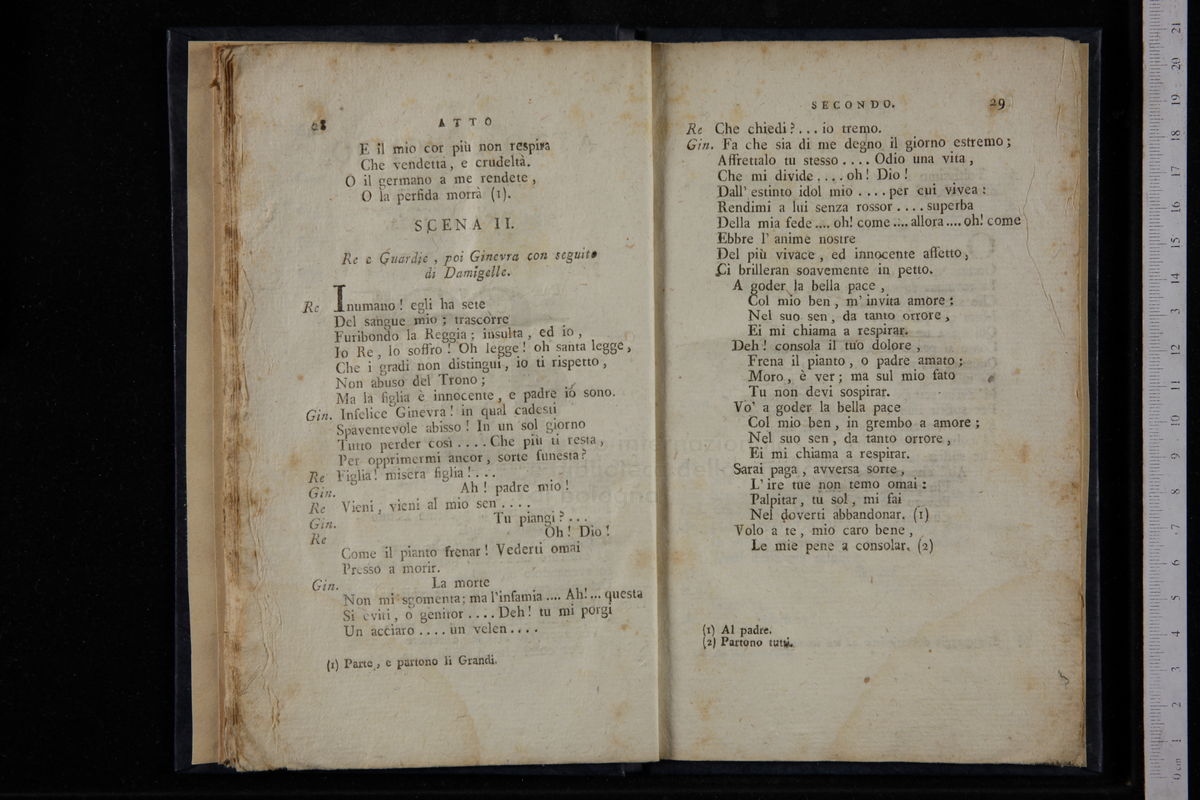 28
ATTO
E il mio cor più non respira
Che vendetta, e crudeltà.
O il germano a me rendete,
O la perfida morrà (1).
SCENA II.
Re e Guardie, poi Ginevra con seguito
di Damigelle.
Re Inumano! egli ha sete
Del sangue mio; trascorre
Furibondo la Reggia; insulta, ed io,
Io Re, lo soffro! Oh legge! oh santa legge,
Che i gradi non distingui, io ti rispetto,
Non abuso del Trono;
Ma la figlia è innocente, e padre io sono.
Gin. Infelice Ginevra! in qual cadesti
Spaventevole abisso! In un sol giorno
Tutto perder così .... Che più ti resta,
Per opprimermi ancor, sorte funesta?
Re Figlia! misera figlia!...
Gin. Ah! padre mio!
Re Vieni, vieni al mio sen ....
Gin. Tu piangi?...
Re Oh! Dio!
Come il pianto frenar! Vederti omai
Presso a morir.
Gin. La morte
Non mi sgomenta; ma l'infamia .... Ah!... questa
Si eviti, o genitor .... Deh! tu mi porgi
Un acciaro .... un velen ....
(1) Parte, e partono li Grandi.
SECONDO.
29
Re Che chiedi?... io tremo.
Gin. Fa che sia di me degno il giorno estremo;
Affrettalo tu stesso .... Odio una vita,
Che mi divide .... oh! Dio!
Dall' estinto idol mio .... per cui vivea:
Rendimi a lui senza rossor .... superba
Della mia fede .... oh! come .... allora .... oh! come
Ebbre l' anime nostre
Del più vivace, ed innocente affetto,
Ci brilleran soavemente in petto.
A goder la bella pace,
Col mio ben, m' invita amore:
Nel suo sen, da tanto orrore,
Ei mi chiama a respirar.
Deh! consola il tuo dolore,
Frena il pianto, o padre amato;
Moro, è ver; ma sul mio fato
Tu non devi sospirar.
Vo' a goder la bella pace
Col mio ben, in grembo a amore;
Nel suo sen, da tanto orrore,
Ei mi chiama a respirar.
Sarai paga, avversa sorte,
L' ire tue non temo omai:
Palpitar, tu sol, mi fai
Nel doverti abbandonar. (1)
Volo a te, mio caro bene,
Le mie pene a consolar. (2)
(1) Al padre.
(2) Partono tutti.